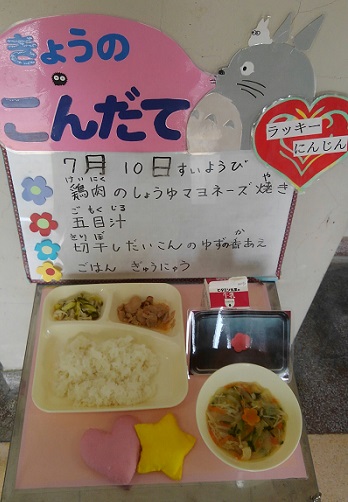 きょうの
こんだて
ラッキー
にんじん
7月 10日 すいようび
けいにく や
鶏肉のしょうゆマヨネーズ焼き
ごもくじる
五目汁
きりぼ か
切干しだいこんのゆずの香あえ
ごはん ぎゅうにゅう